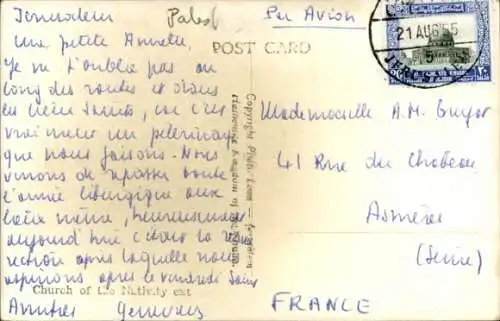 Jerusalem
Palest
Par Avion
21 AUG 55
POST CARD
ma petite Annette,
Je ne t'oublie pas au
long des routes et dans
les lieux Saints, car c'est
vraiment un pelerinage
que nous faisons. Nous
venons de toute
l'année liturgique aux
lieux même, heureusement
aujourd'hui c'était la résur
rection après laquelle nous
aspirions après le vendredi Saint
Amitiés Genevieve
Church of the Nativity ext
Copyright Photo
Hashemite Kingdom of the Jordan.
Mademoiselle A.M. Guyot
41 Rue du Chateau
Asnières
(Seine)
FRANCE